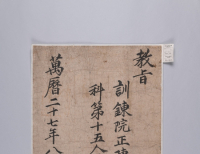 教旨
訓鍊院正
科第十五人
萬曆二十七年八